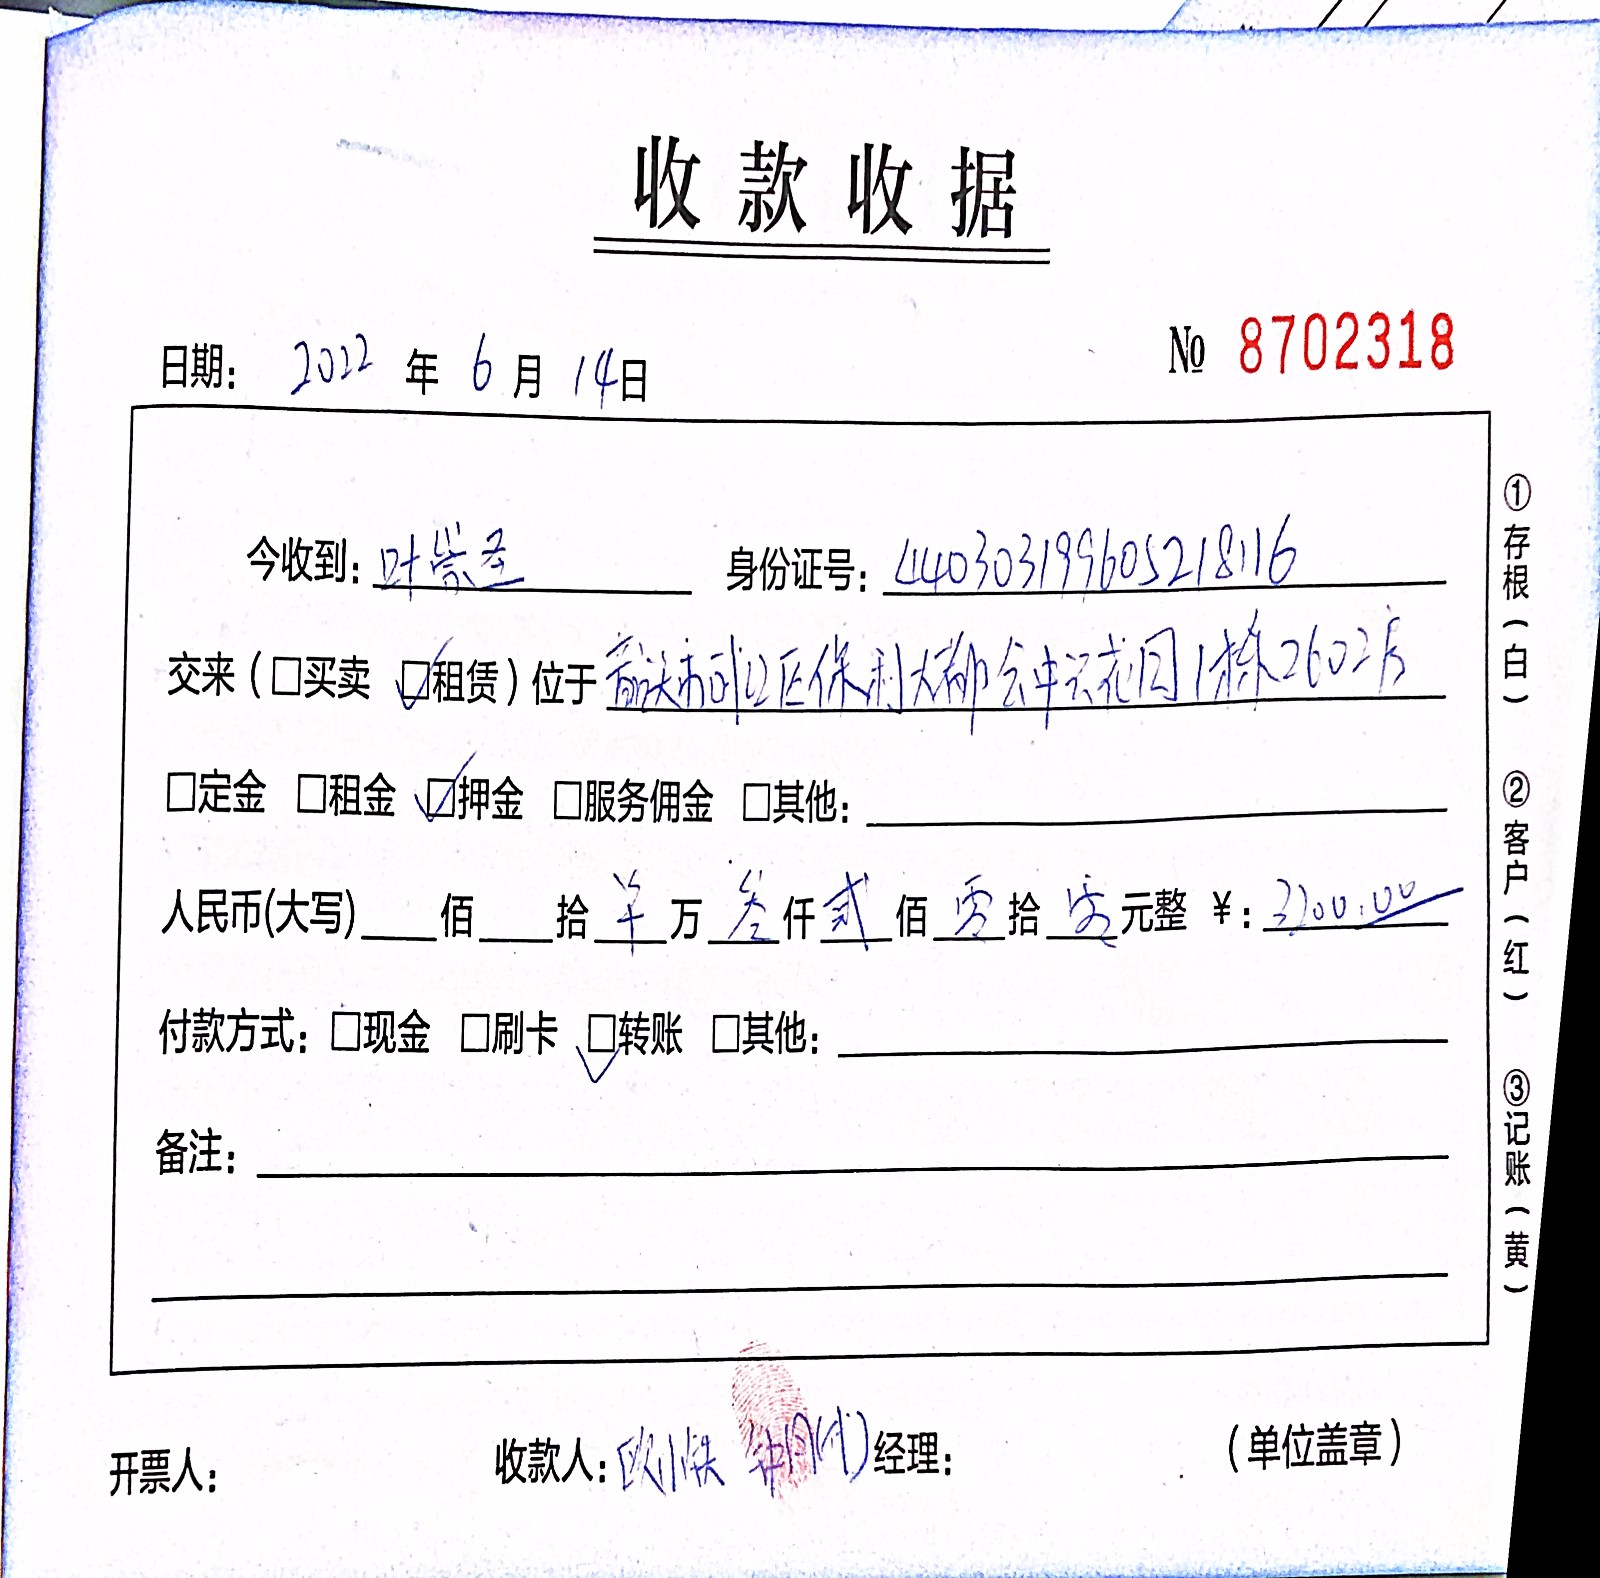 收款收据
日期： 2022 年 6 月 14日
№ 8702318
今收到：叶崇圣 身份证号：440303199605218116
交来（□买卖 ☑租赁）位于 市 江区保利大都会中云花园1栋2602房
□定金 □租金 ☑押金 □服务佣金 □其他：
人民币(大写) 佰 拾 羊 万 叁 仟 贰 佰 零 拾 零 元整 ¥：3200.00
付款方式：□现金 □刷卡 ☑转账 □其他：
备注：
开票人： 收款人：欧小铁 (代) 经理： （单位盖章）
①存根（白）
②客户（红）
③记账（黄）